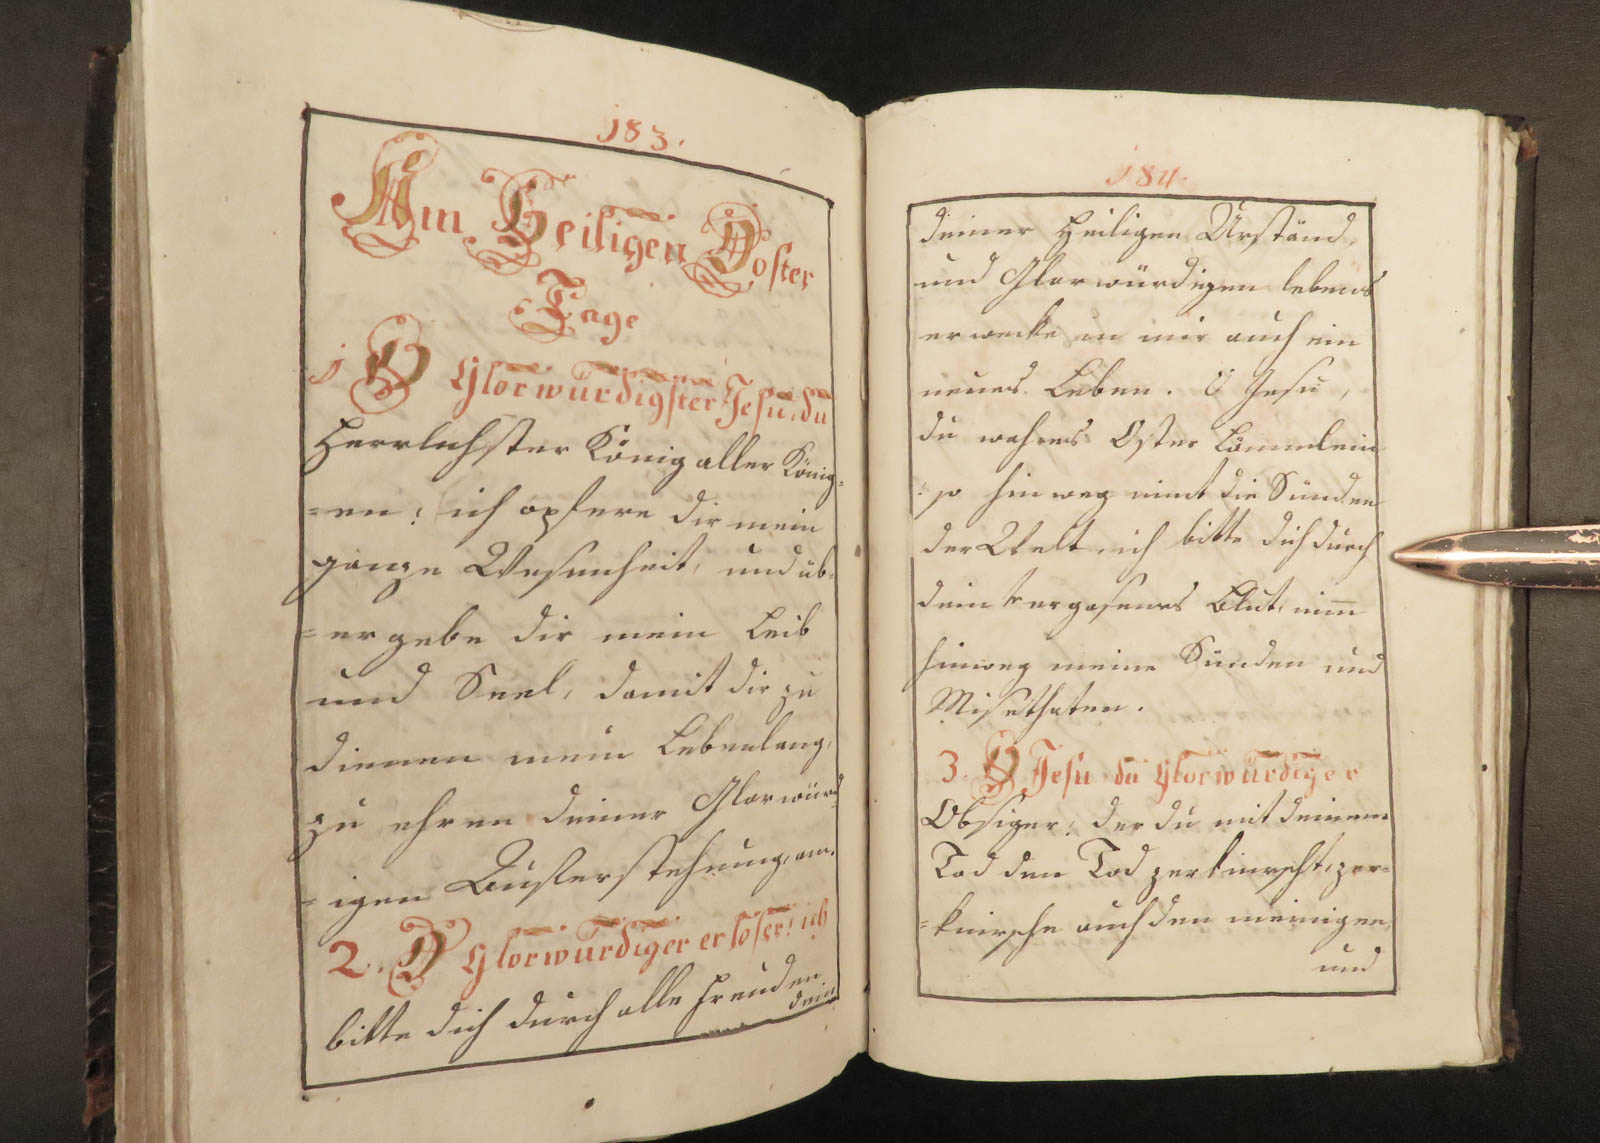 183.
Am Heiligen Oster
Tage
1 O Glorwürdigster Jesu, du
Herrlichster König aller König=
=en! ich opfere dir mein
ganze Wesenheit, und üb=
=ergebe dir mein Leib
und Seel, damit dir zu
dienen mein Lebenlang,
zu ehren deiner Glorwürd=
=igen Auferstehnung, am.
2. O Glorwürdiger erloser! ich
bitte dich durch alle Freuden
dein
184.
deiner Heiligen Urständ,
und Glorwürdigen lebens
erwecke in mir auch ein
neues Leben. O Jesu,
du wahres Oster Lämmlein
so hinweg nimt die Sünden
der Welt, ich bitte dich durch
dein vergosenes Blut, nim̄
hinweg meine Sünden und
Misethaten.
3. O Jesu du Glorwürdiger
Obsiger! der du mit deinem
Tod den Tod zerknirscht, zer=
=knirsche auch den meinigen,
und